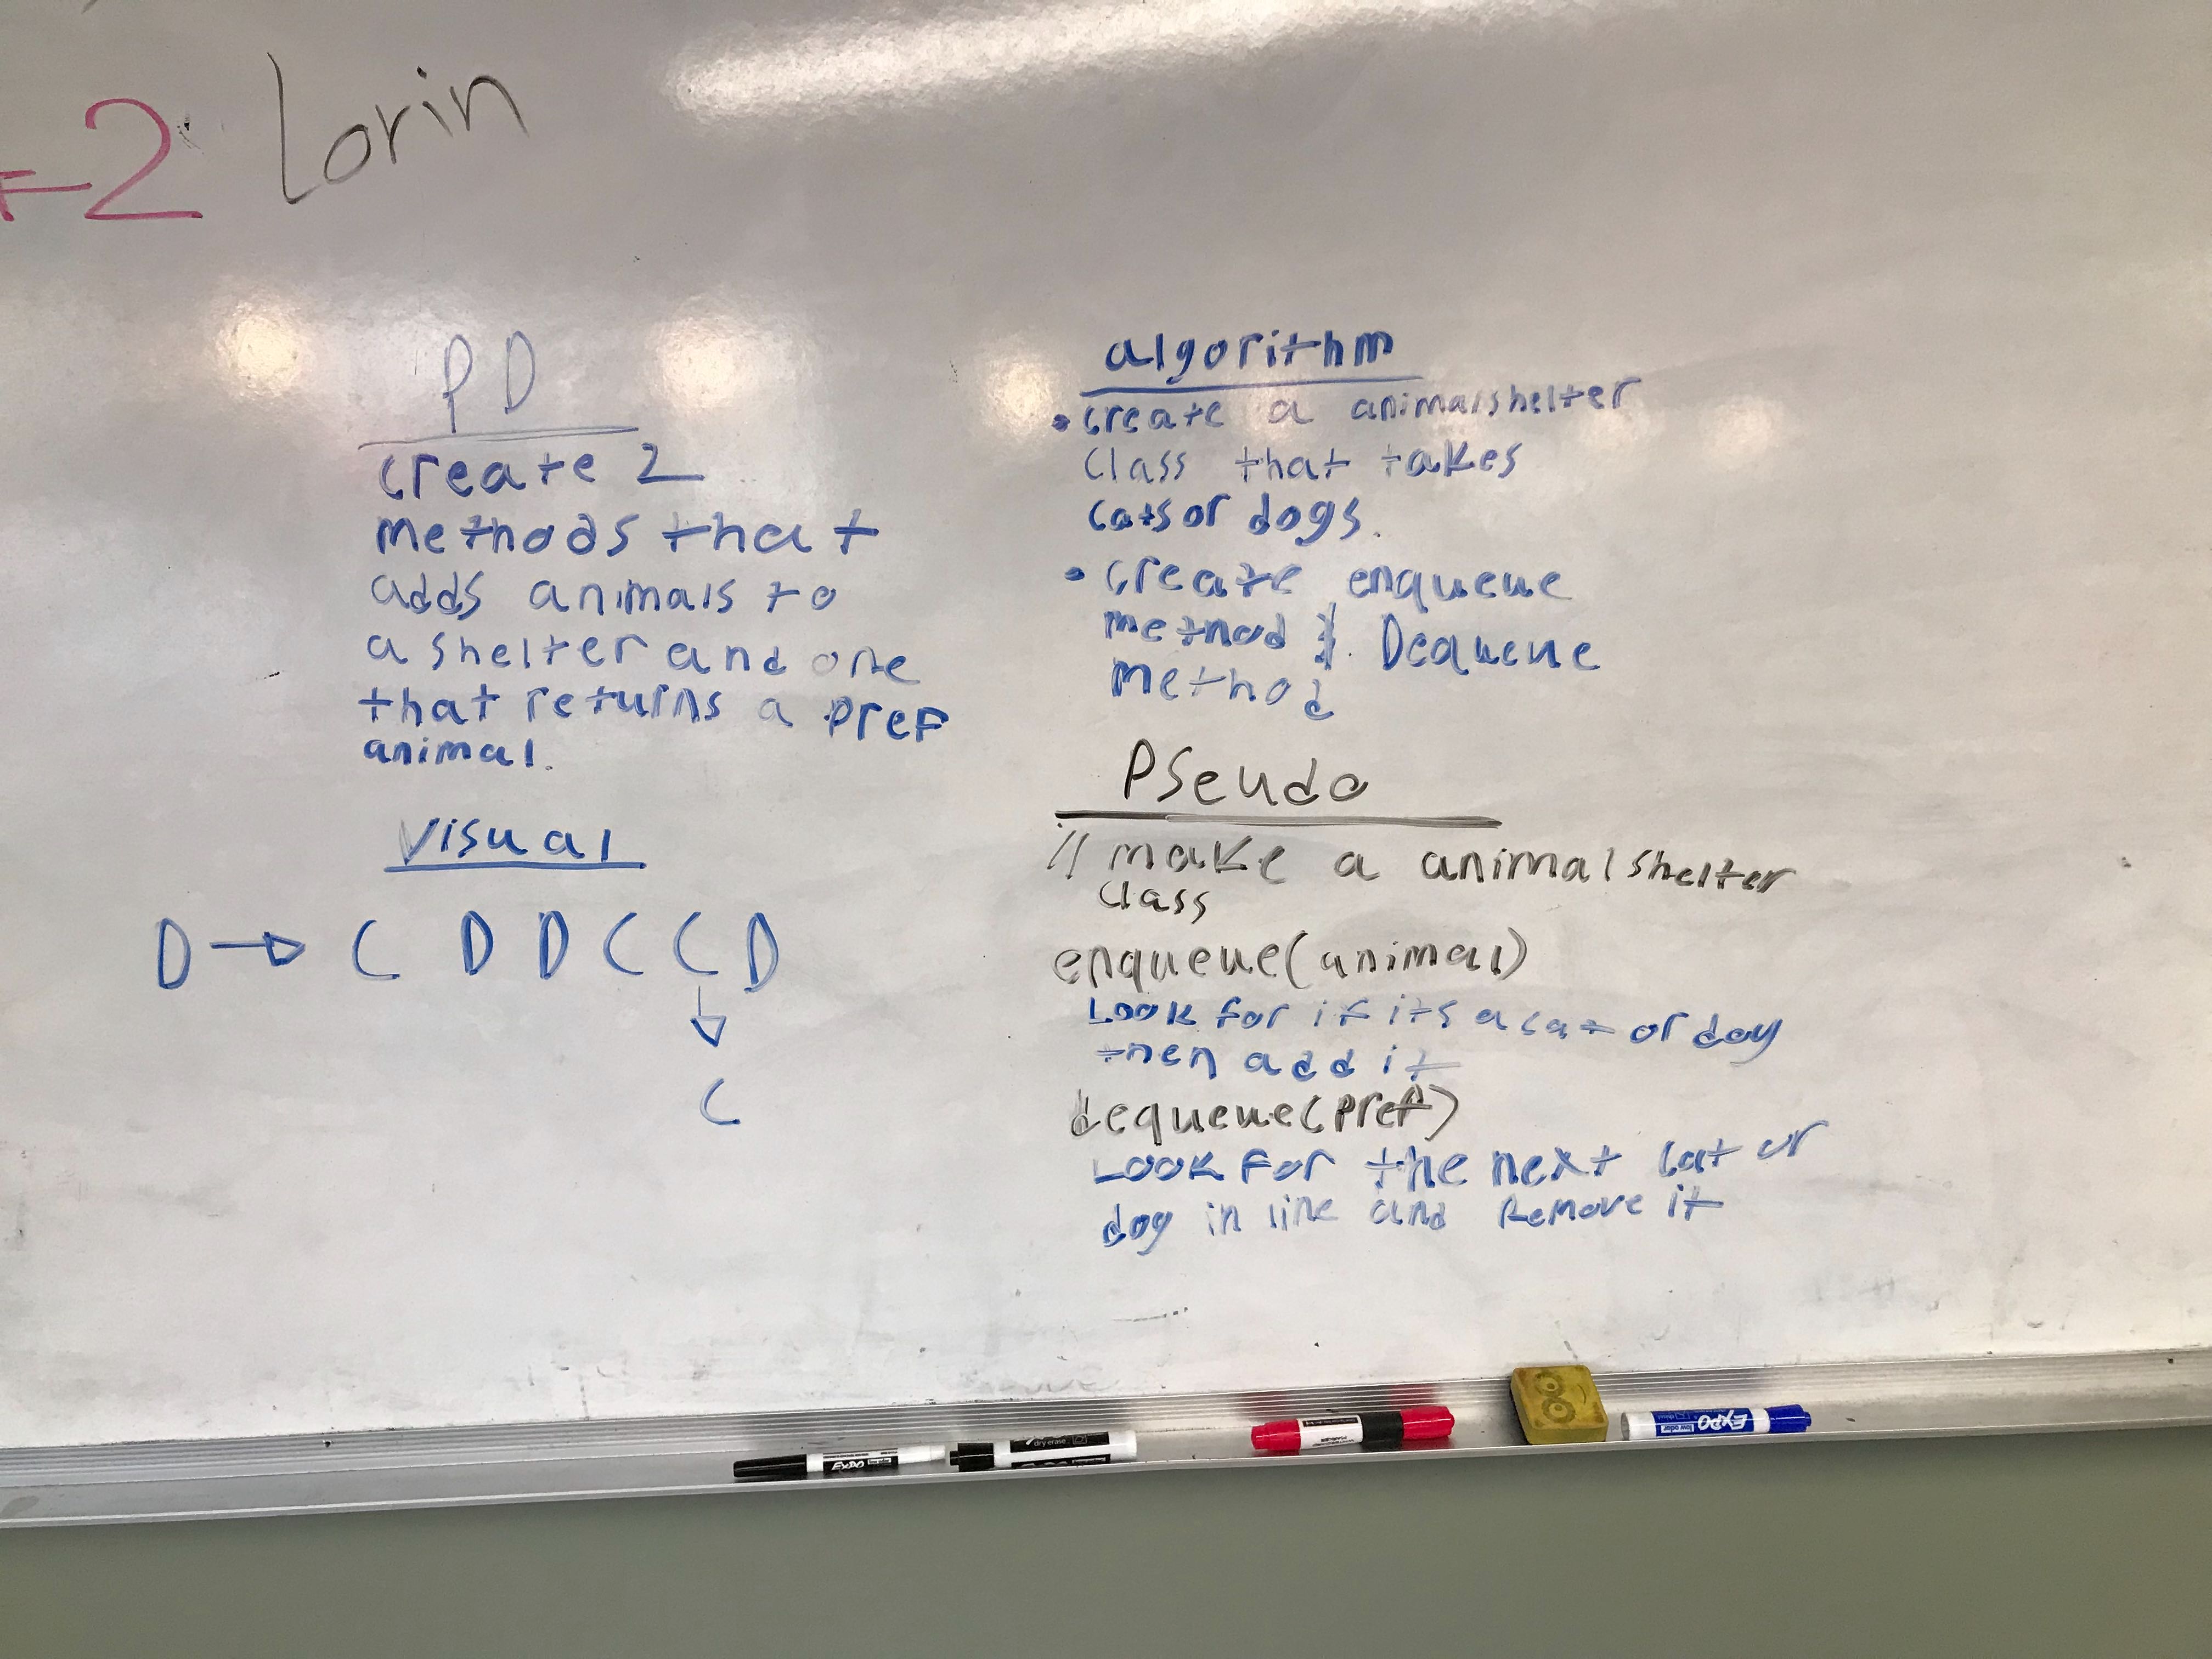 2 Lorin
PD
create 2
methods that
adds animals to
a shelter and one
that returns a pref
animal.
Visual
D → C D D C C D
C
algorithm
• create a animalshelter
class that takes
cats or dogs.
• create enqueue
method &. Dequeue
method
PSeudo
// make a animalshelter
class
enqueue(animal)
Look for if its a cat or dog
then add it
dequeue(pref)
LOOK For the next cat or
dog in line and Remove it
EXPO
dry erase
EXPO
low odor